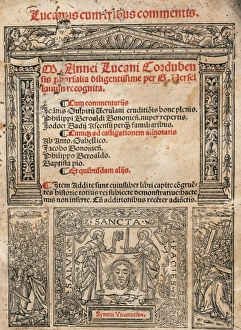 Lucanus cum tribus commentis.
M. Annei Lucani Cordubensis
pharsalia diligentissime per G. Versel
lanum recognita.
Cum commentariis
Joānis Sulpitii Verulani eruditiōis bone plenis.
Philippi Beroaldi Bononiēsis nuper repertis.
Jodoci Badii Ascensii perq̄ familiaribus.
Cumq̄ ad castigationem adnotatis
Ab Anto. Sabellico.
Jacobo Bononiēsi.
Philippo Beroaldo.
Baptista pio.
Et quibusdam aliis.
Item Addite sunt cuiuslibet libri capite cōgruē
tes historie totius rei subiecte demonstratiue: hacte
nus non inserte. Cū additionibus recēter adiectis.
SANCTA
Symon Vincentius.